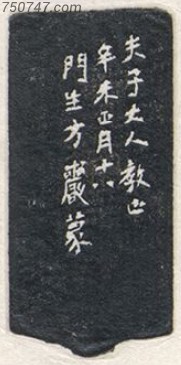 750747.com
夫子大人教正
辛未正月十六
門生方巖篆